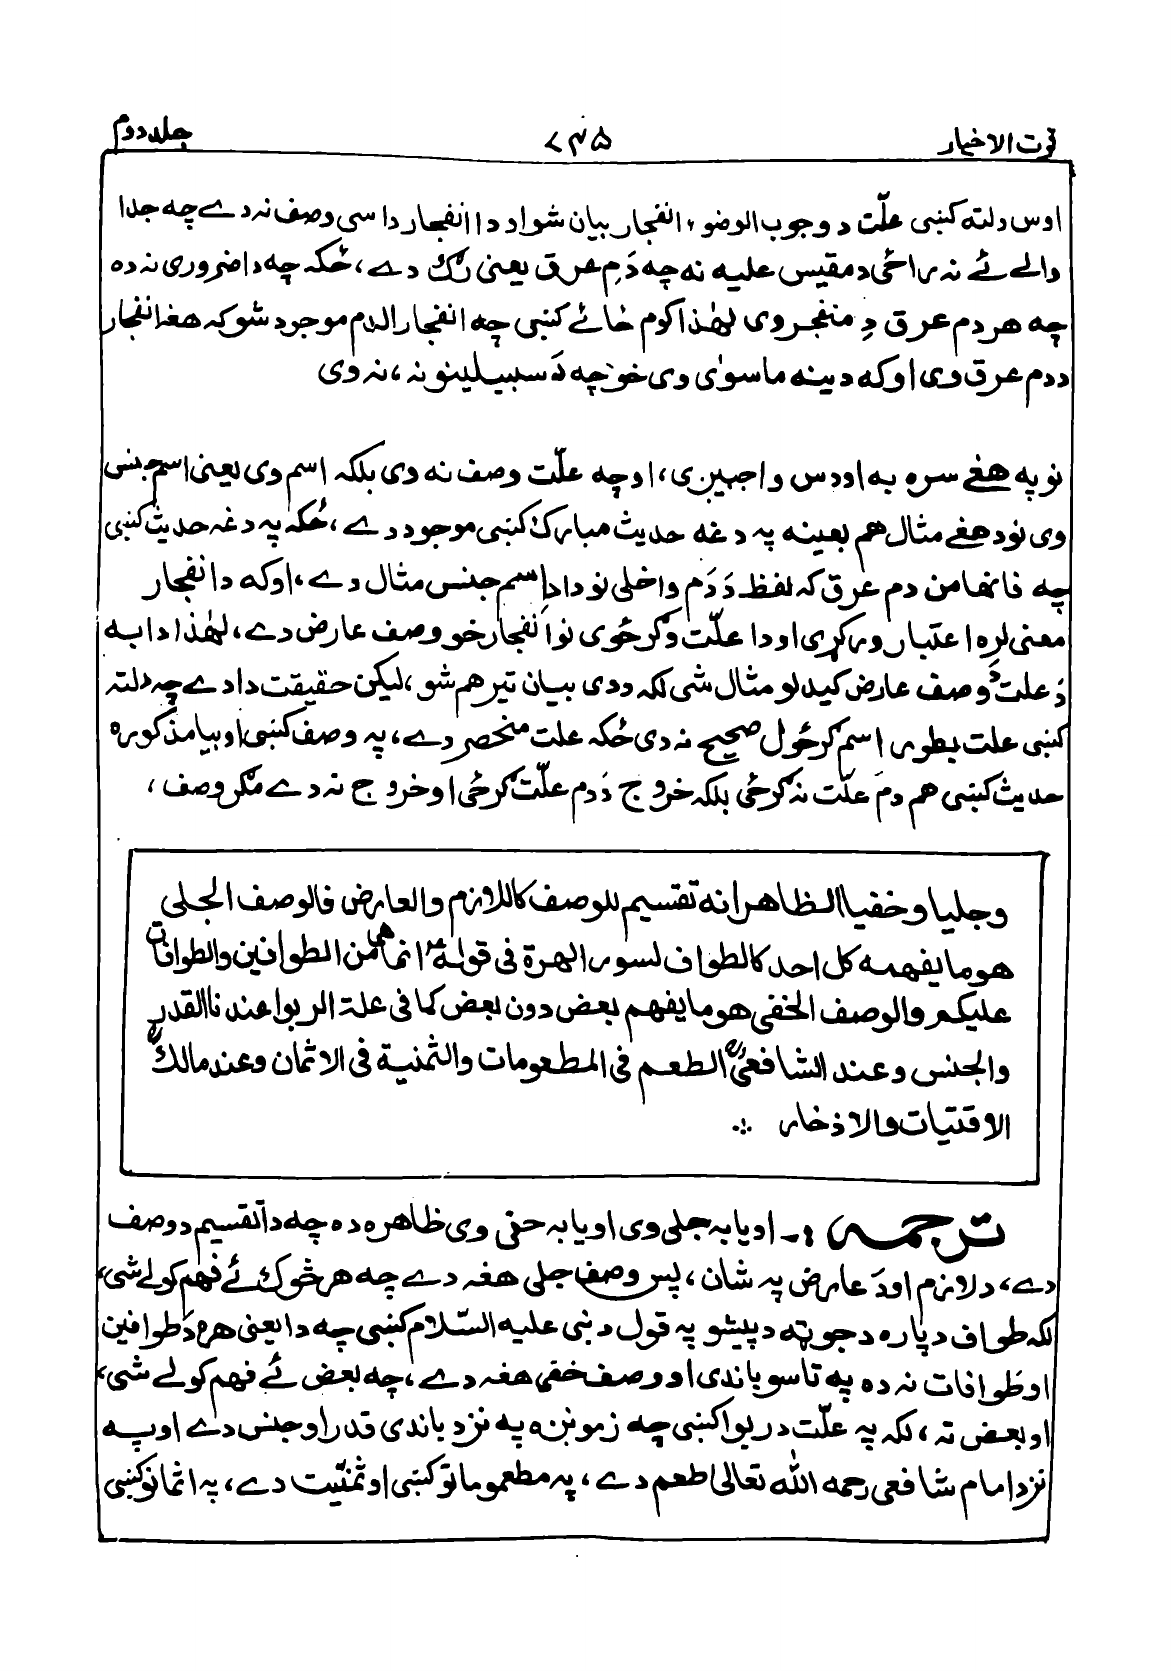 قوت الاخیار ۷۳۵ جلد دوم
اوس دلته کښې علّت د وجوب الوضوء انفجار بیان شو او دا انفجار داسې وصف نه دے چه جدا
والے ئے نه راځی د مقیس علیه نه چه دَمِ عرق یعنی رګ دے، ځکه چه دا ضروری نه ده
چه هر دم عرق دِ منفجر وی لهٰذا کوم ځائے کښې چه انفجار الدم موجود شو که هغه انفجار
د دم عرق وی او که د ینه ماسوٰی وی خو چه دَ سبیلینو نه، نه وی
نو په هغے سره به اودس واجبیږی، او چه علّت وصف نه وی بلکه اسم وی یعنی اسم جنس
وی نو د هغے مثال هم بعینه په دغه حدیث مبارک کښې موجود دے، ځکه په دغه حدیث کښې
چه فانها من دم عرق که لفظ دَ دَم واخلی نو دا د اِسم جنس مثال دے، او که د انفجار
معنی لره اعتبار ورکړی او دا علّت وګرځوی نو انفجار خو وصف عارض دے، لهٰذا دا به
دَ علت وصف عارض کیدلو مثال شی لکه وړی بیان تیر هم شو، لیکن حقیقت دا دے چه دلته
کښې علت بطور اسم ګرځول صحیح نه دی ځکه علت منحصر دے، په وصف کښې او بیا مذکوره
حدیث کښې هم دمَ علّت نه ګرځی بلکه خروج دَ دم علّت ګرځی او خروج نه دے مګر وصف،
وجليا وخفيا الظاهر انه تقسيم للوصف كاللازم والعارض فالوصف الجلى
هو ما يفهمه كل احد كالطواف لسور الهرة فى قوله ؑ انما هى من الطوافين والطوافات
عليكم والوصف الخفى هو ما يفهم بعض دون بعض كما فى علة الربوا عندنا القدر
والجنس وعند الشافعىؒ الطعم فى المطعومات والثمنية فى الاثمان وعند مالكؒ
الاقتيات والادخار ∴
ترجمه :- او یا به جلی وی او یا به خفی وی ظاهره ده چه دا تقسیم د وصف
دے، د لازم او دَ عارض په شان، پس وصف جلی هغه دے چه هر څوک ئے فهم کولے شی،
لکه طواف د پاره د جوټه د پیشو په قول د نبی علیه السّلام کښې چه دا یعنی هره دَ طوافین
او طوافات نه ده په تاسو باندی او وصف خفی هغه دے، چه بعض ئے فهم کولے شی،
او بعض نه، لکه په علّت د ربوا کښې چه زمونږه په نزد باندی قدر او جنس دے او په
نزد امام شافعی رحمه الله تعالٰی طعم دے، په مطعوماتو کښې او ثمنیّت دے، په اثمانو کښې